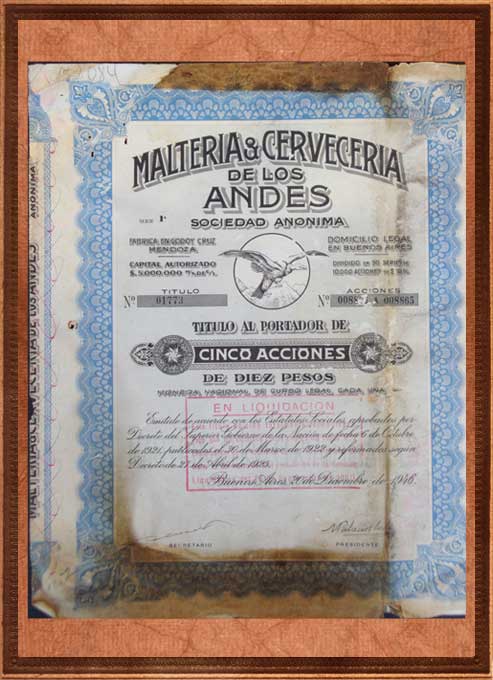 MALTERIA & CERVECERIA
DE LOS
ANDES
SERIE 1ª
SOCIEDAD ANONIMA
FABRICA EN GODOY CRUZ
MENDOZA
DOMICILIO LEGAL
EN BUENOS AIRES
CAPITAL AUTORIZADO
$ 5.000.000
DIVIDIDO EN 50 SERIES DE
10.000 ACCIONES DE $ 10
TITULO
Nº 01773
ACCIONES
Nº A 008865
TITULO AL PORTADOR DE
CINCO ACCIONES
DE DIEZ PESOS
MONEDA NACIONAL DE CURSO LEGAL CADA UNA
EN LIQUIDACION
Emitido de acuerdo con los Estatutos Sociales aprobados por
Decreto del Superior Gobierno de la Nación de fecha 6 de Octubre
de 1921, publicados el 30 de Marzo de 1922 y reformados según
Decreto de 27 de Abril de 1923.
Buenos Aires, 20 de Diciembre de 1946
SECRETARIO
PRESIDENTE
ANONIMA
MALTERIA & CERVECERIA DE LOS ANDES